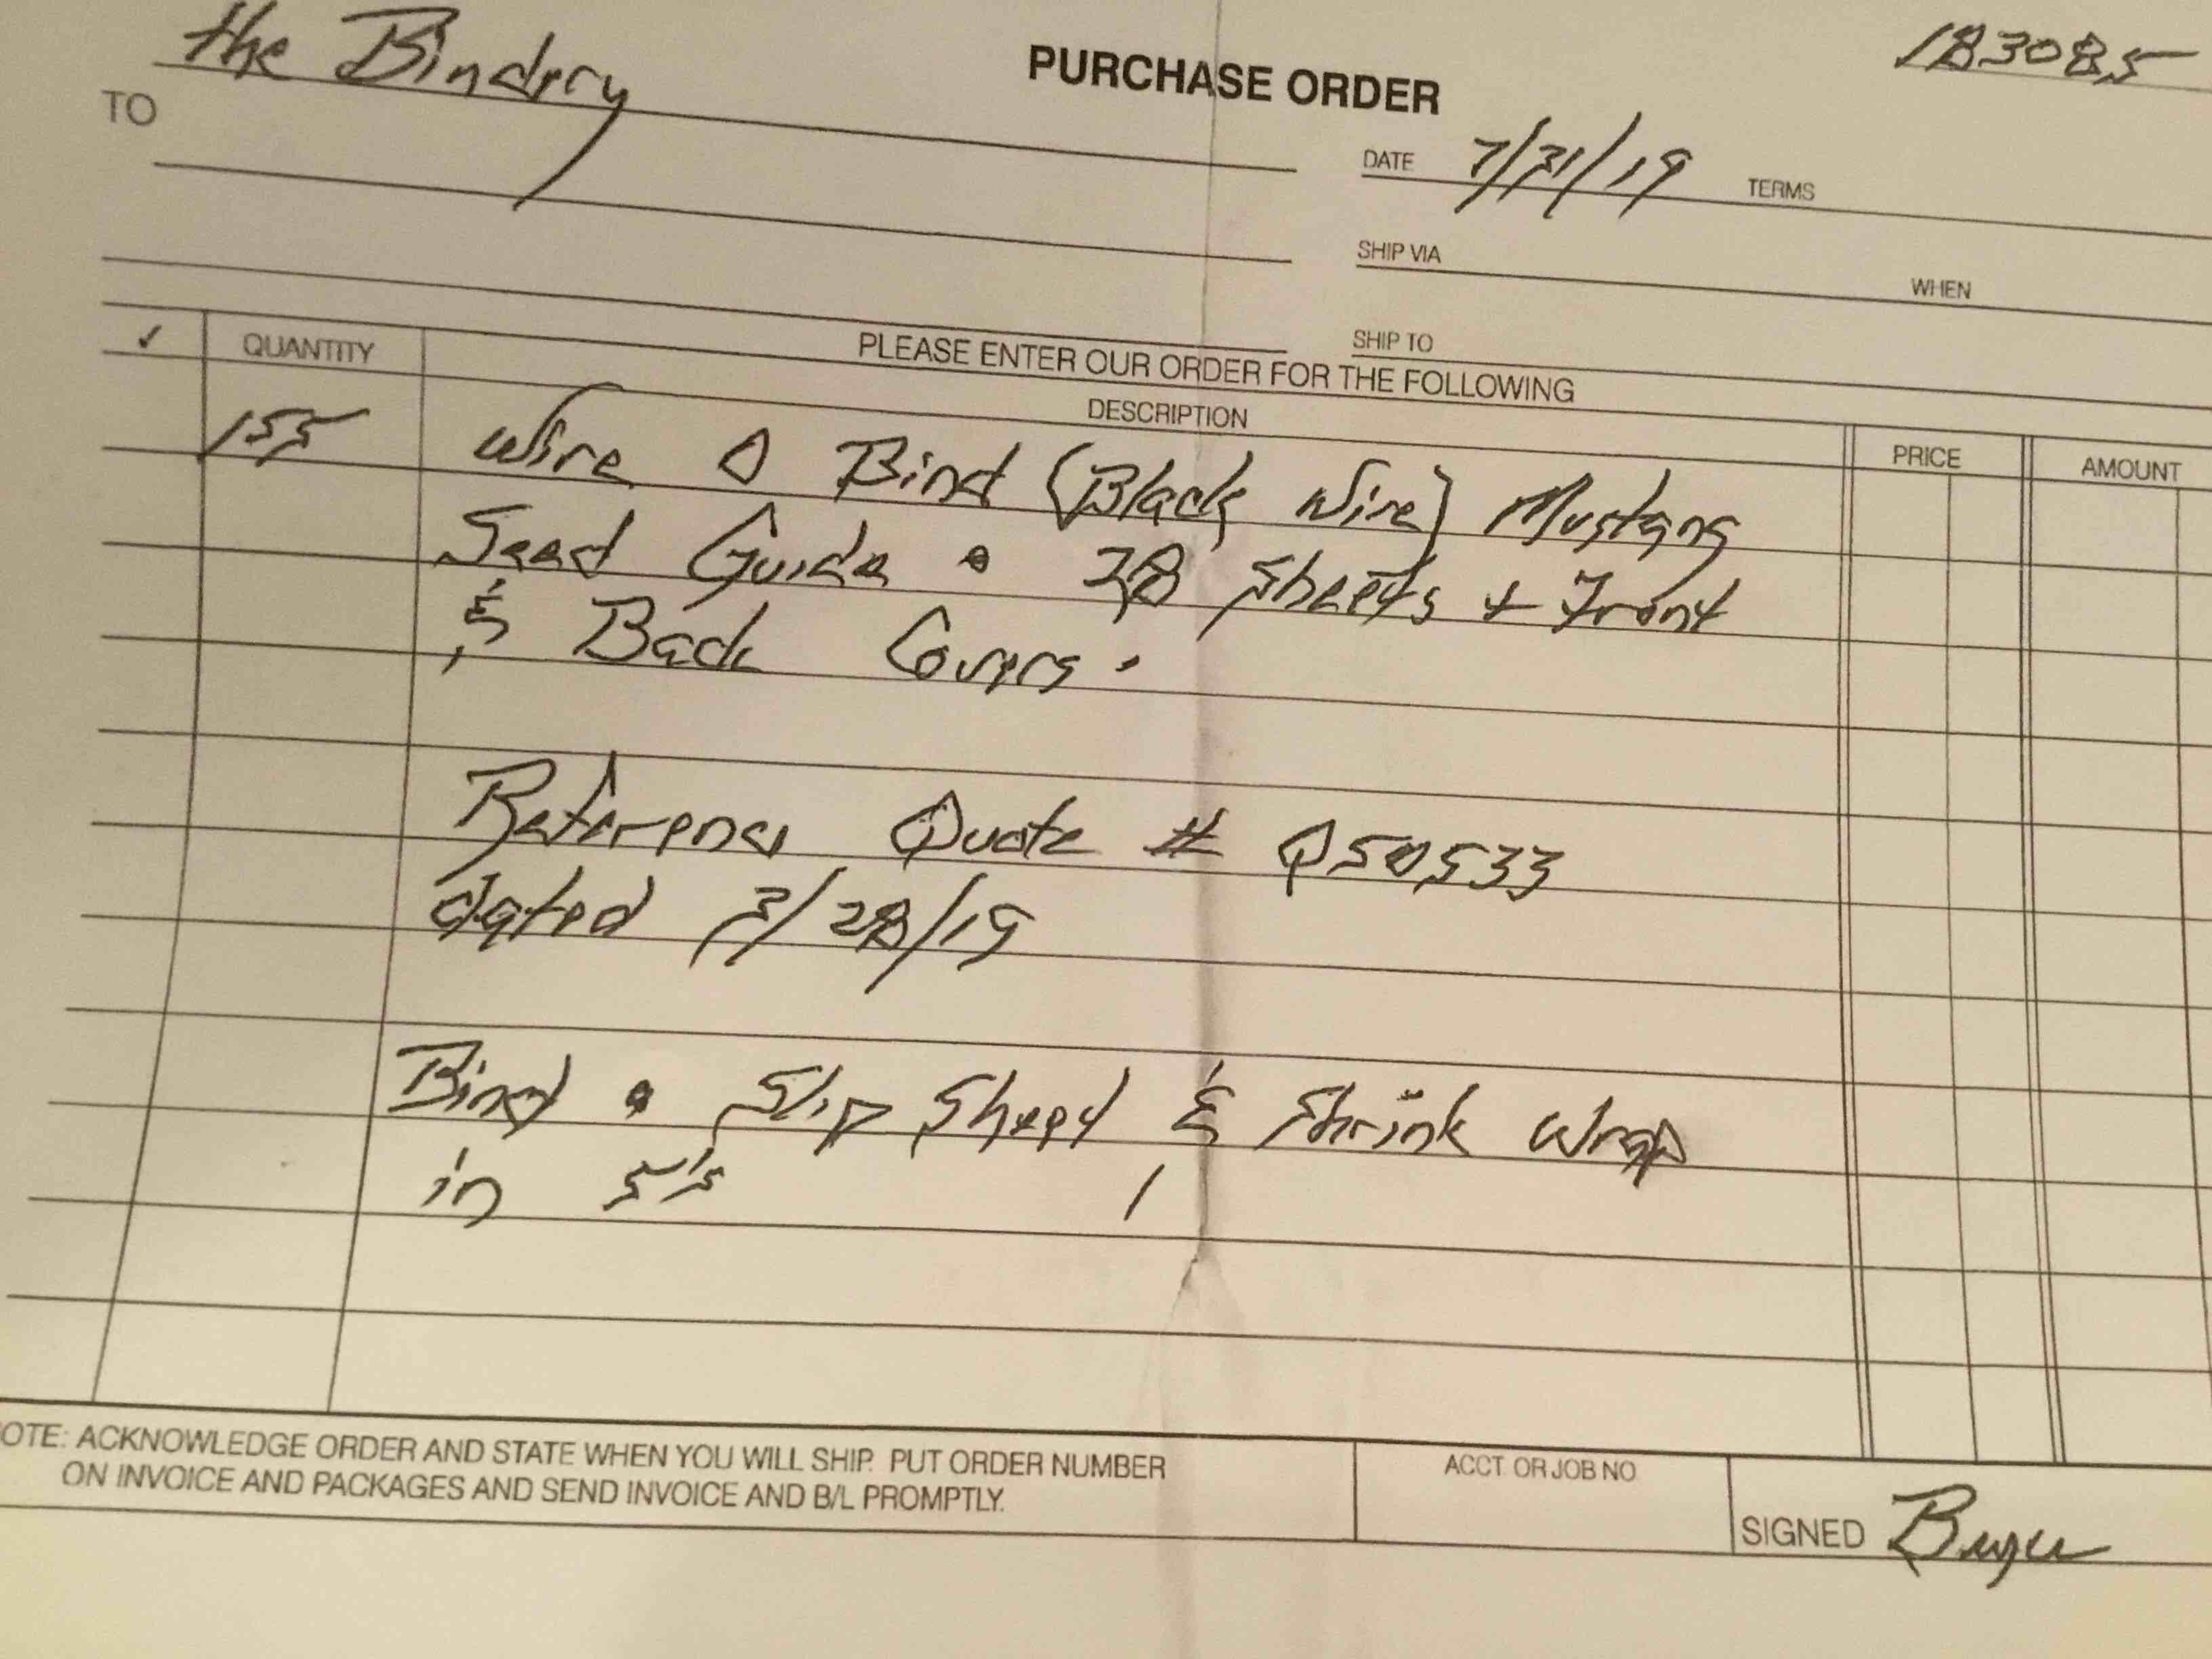 the Bindery
PURCHASE ORDER
183085
TO
DATE 7/31/19 TERMS
SHIP VIA
WHEN
SHIP TO
✓ QUANTITY PLEASE ENTER OUR ORDER FOR THE FOLLOWING
DESCRIPTION
PRICE AMOUNT
155 Wire O Bind (Black Wire) Mustang
Seed Guide • 28 Sheets + Front
& Back Covers.
Reference Quote # Q50533
dated 3/28/19
Bind • Slip Sheet & Shrink Wrap
in 5's
OTE: ACKNOWLEDGE ORDER AND STATE WHEN YOU WILL SHIP. PUT ORDER NUMBER
ON INVOICE AND PACKAGES AND SEND INVOICE AND B/L PROMPTLY.
ACCT. OR JOB NO.
SIGNED